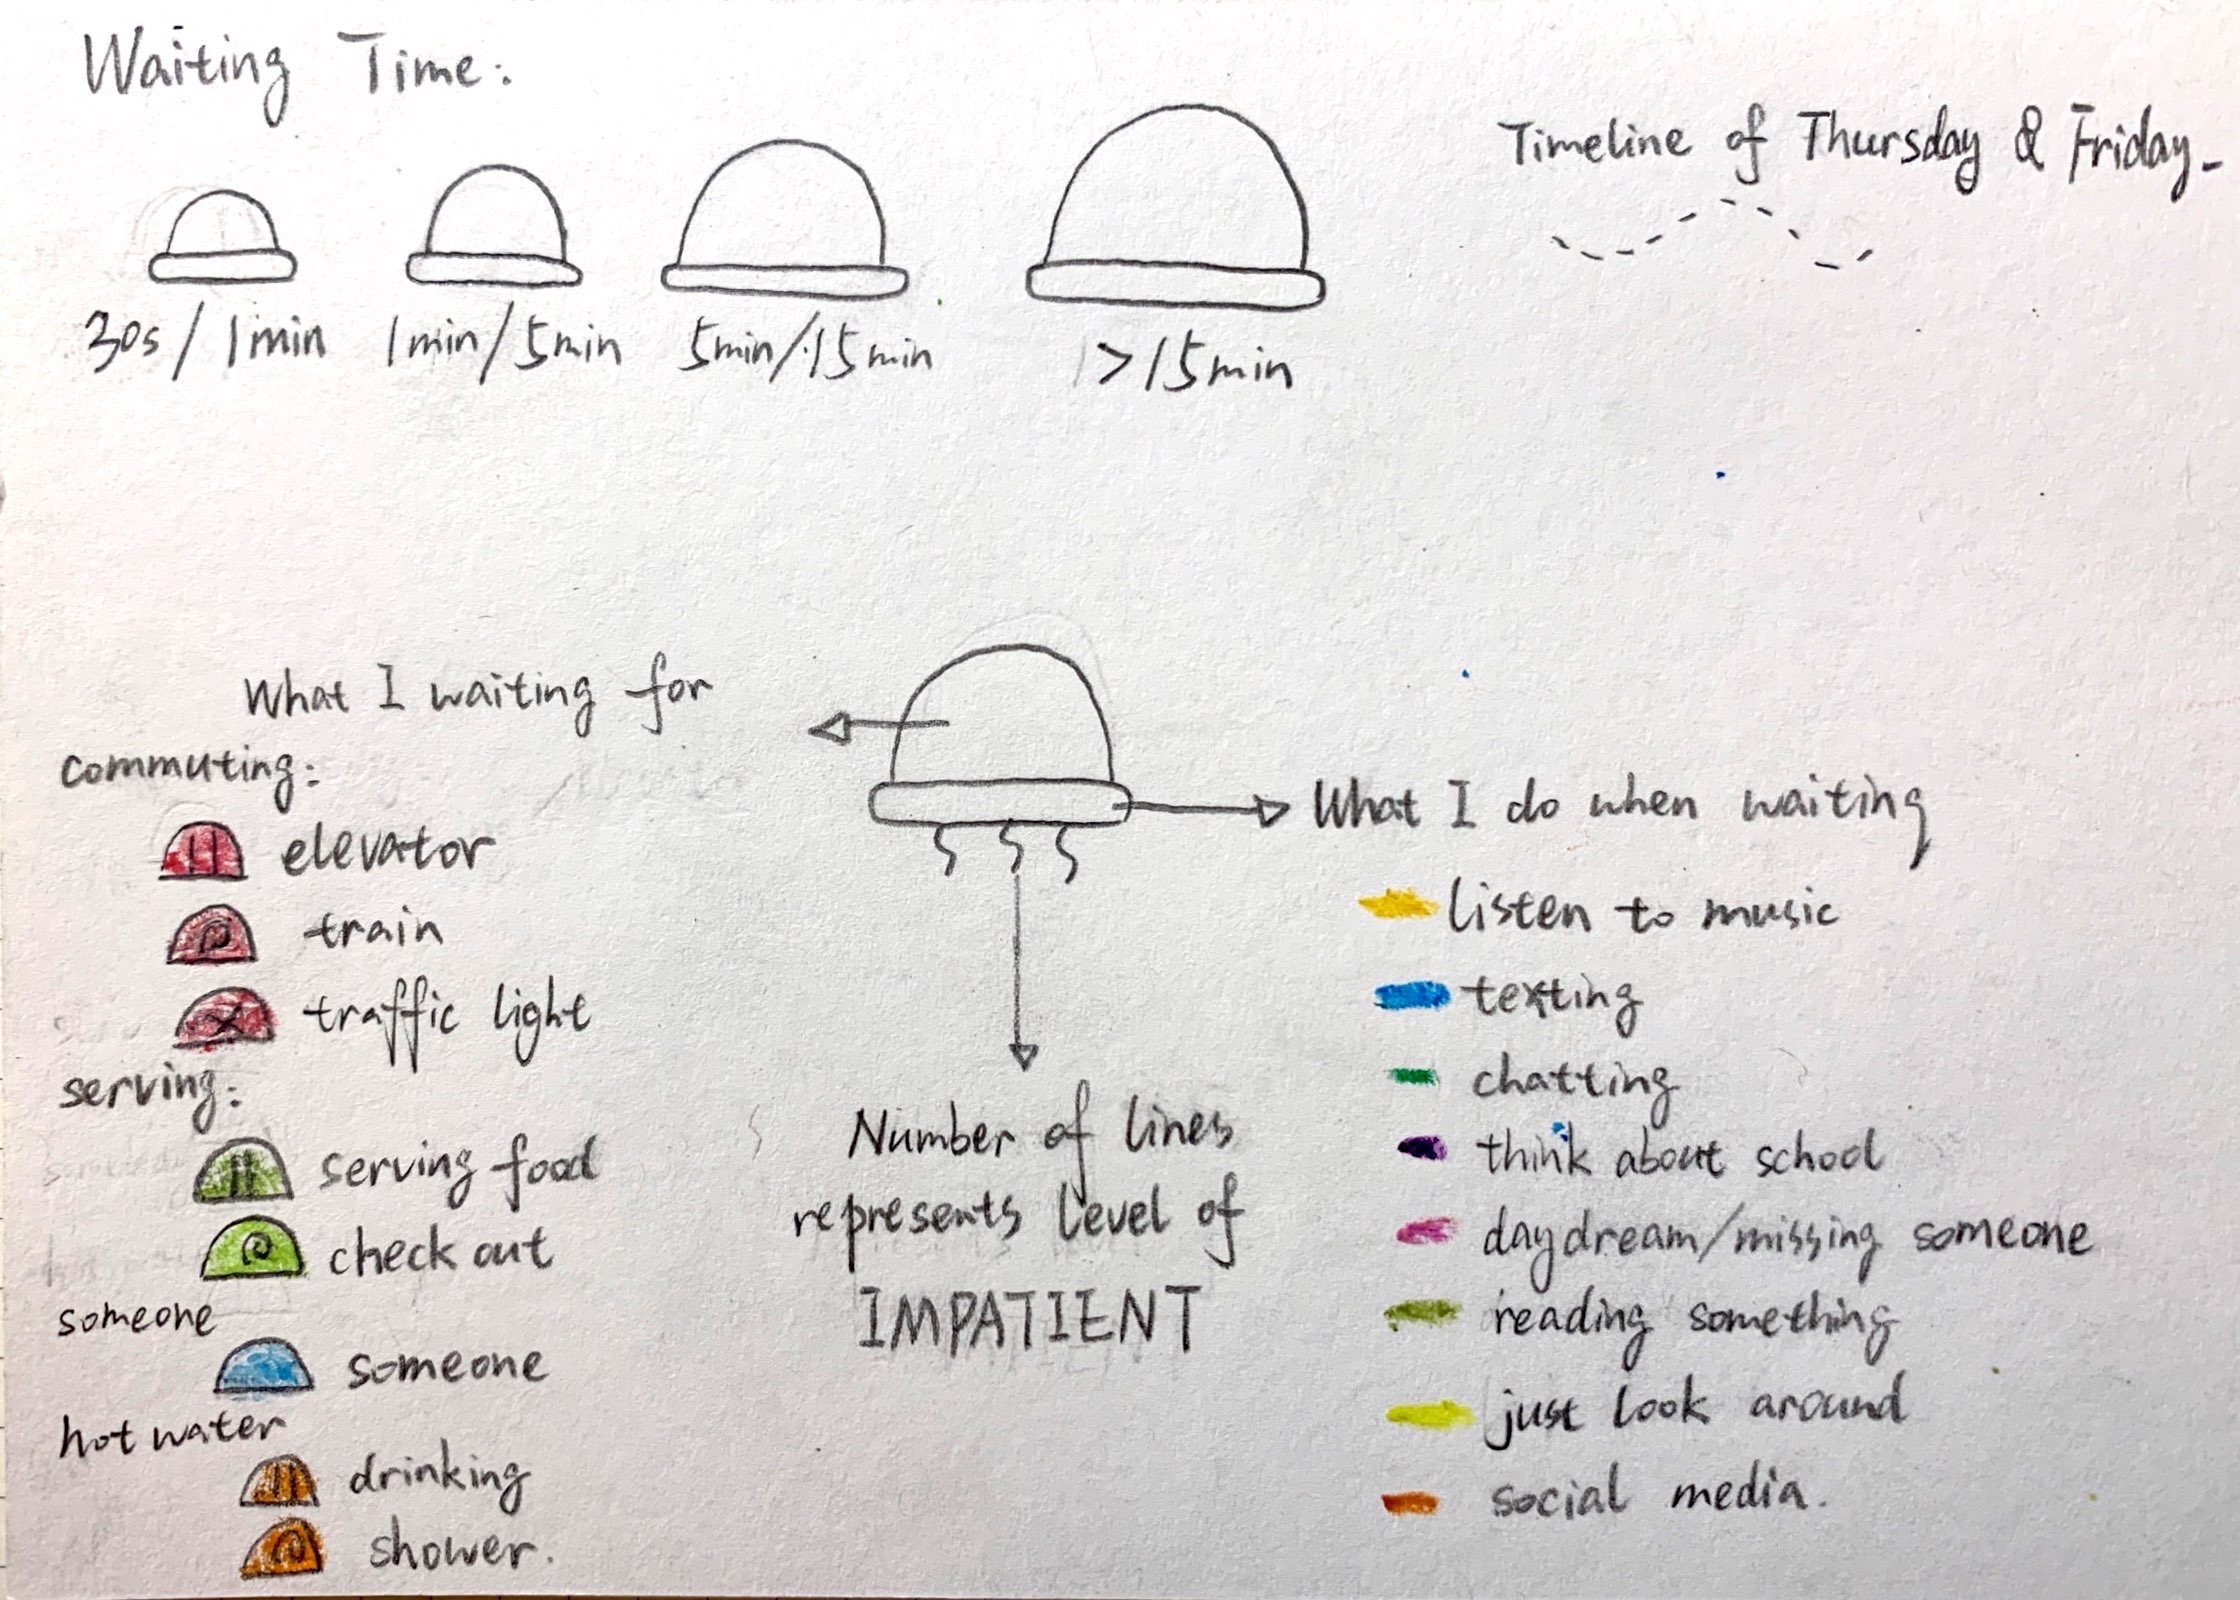 Waiting Time:
Timeline of Thursday & Friday-
30s / 1min
1min / 5min
5min/15min
>15min
What I waiting for
commuting:
elevator
train
traffic light
serving:
serving food
check out
someone
someone
hot water
drinking
shower.
Number of lines
represents level of
IMPATIENT
What I do when waiting
listen to music
texting
chatting
think about school
daydream/missing someone
reading something
just look around
social media.